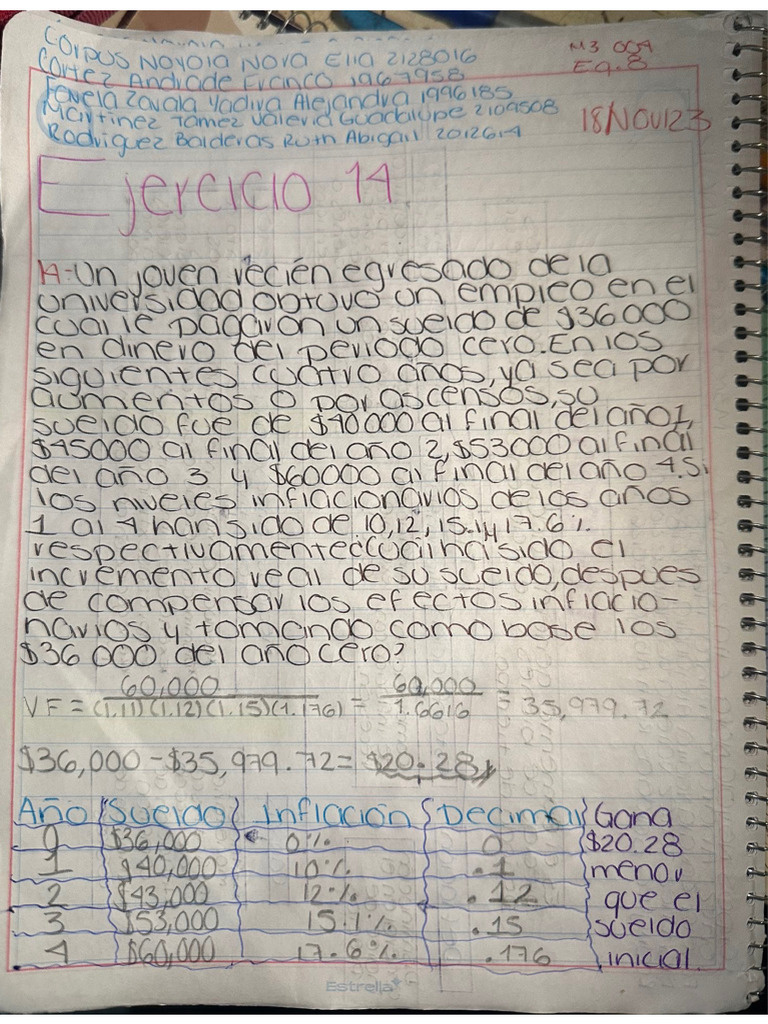 Corpus Noyola Nora Elia 2128016
Cortez Andrade Franco 1967958
Favela Zavala Yadira Alejandra 1996185
Martinez Tamez Valeria Guadalupe 2109508
Rodriguez Balderas Ruth Abigail 2012614
M3 009
Eq.8
18/NOV/23
Ejercicio 14
14-Un joven recién egresado de la
universidad obtuvo un empleo en el
cual le pagaron un sueldo de $36000
en dinero del periodo cero. En los
siguientes cuatro años, ya sea por
aumentos o por ascensos, su
sueldo fue de $40000 al final del año 1,
$45000 al final del año 2, $53000 al final
del año 3 y $60000 al final del año 4. Si
los niveles inflacionarios de los años
1 al 4 han sido de 10, 12, 15.1 y 17.6%.
respectivamente ¿cuál ha sido el
incremento real de su sueldo, despues
de compensar los efectos inflacio-
narios y tomando como base los
$36 000 del año cero?
60,000 60,000
VF = (1.11)(1.12)(1.15)(1.176) = 1.6616 = 35,979.72
$36,000 - $35,979.72 = $20.28
Año Sueldo Inflación Decimal
0 $36,000 0% 0
1 $40,000 10% .1
2 $43,000 12% .12
3 $53,000 15.1% .15
4 $60,000 17.6% .176
Gana
$20.28
menor
que el
sueldo
inicial.
Estrella